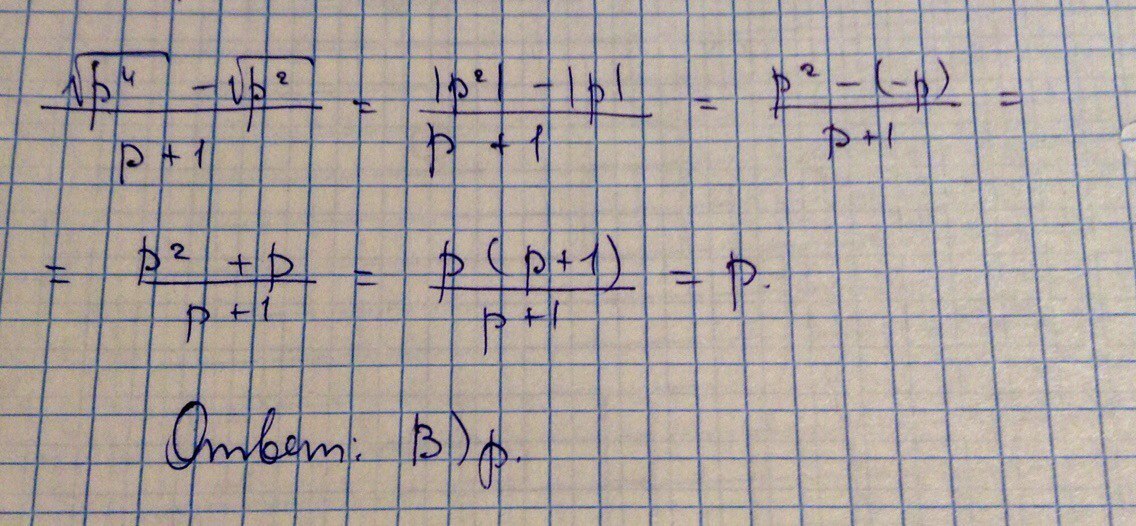 (√p⁴ − √p²)/(p + 1) = (|p²| − |p|)/(p + 1) = (p² − (−p))/(p+1) =
= (p² + p)/(p + 1) = (p (p+1))/(p+1) = p.
Ответ: В) p.